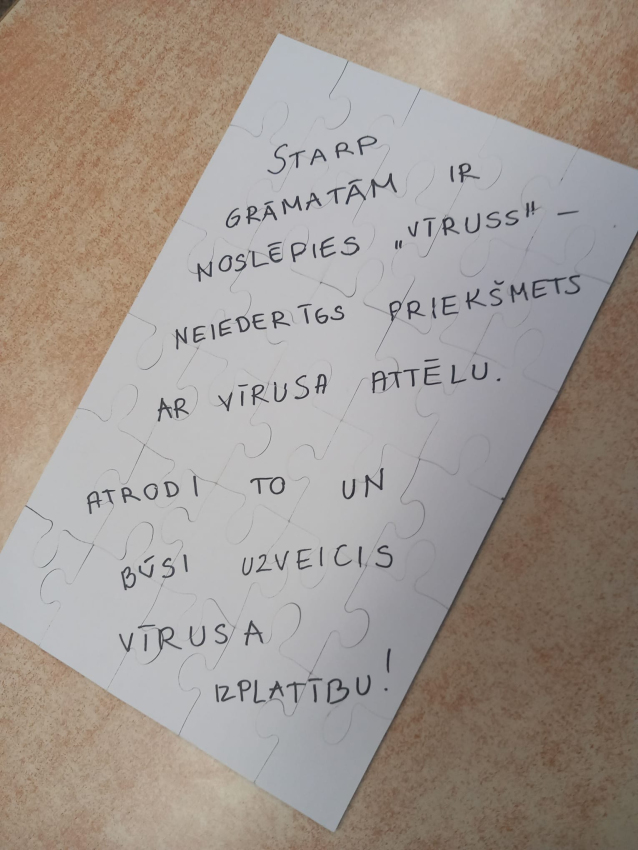 STARP
GRĀMATĀM IR
NOSLĒPIES „VĪRUSS" –
NEIEDERĪGS PRIEKŠMETS
AR VĪRUSA ATTĒLU.
ATRODI TO UN
BŪSI UZVEICIS
VĪRUSA
IZPLATĪBU!